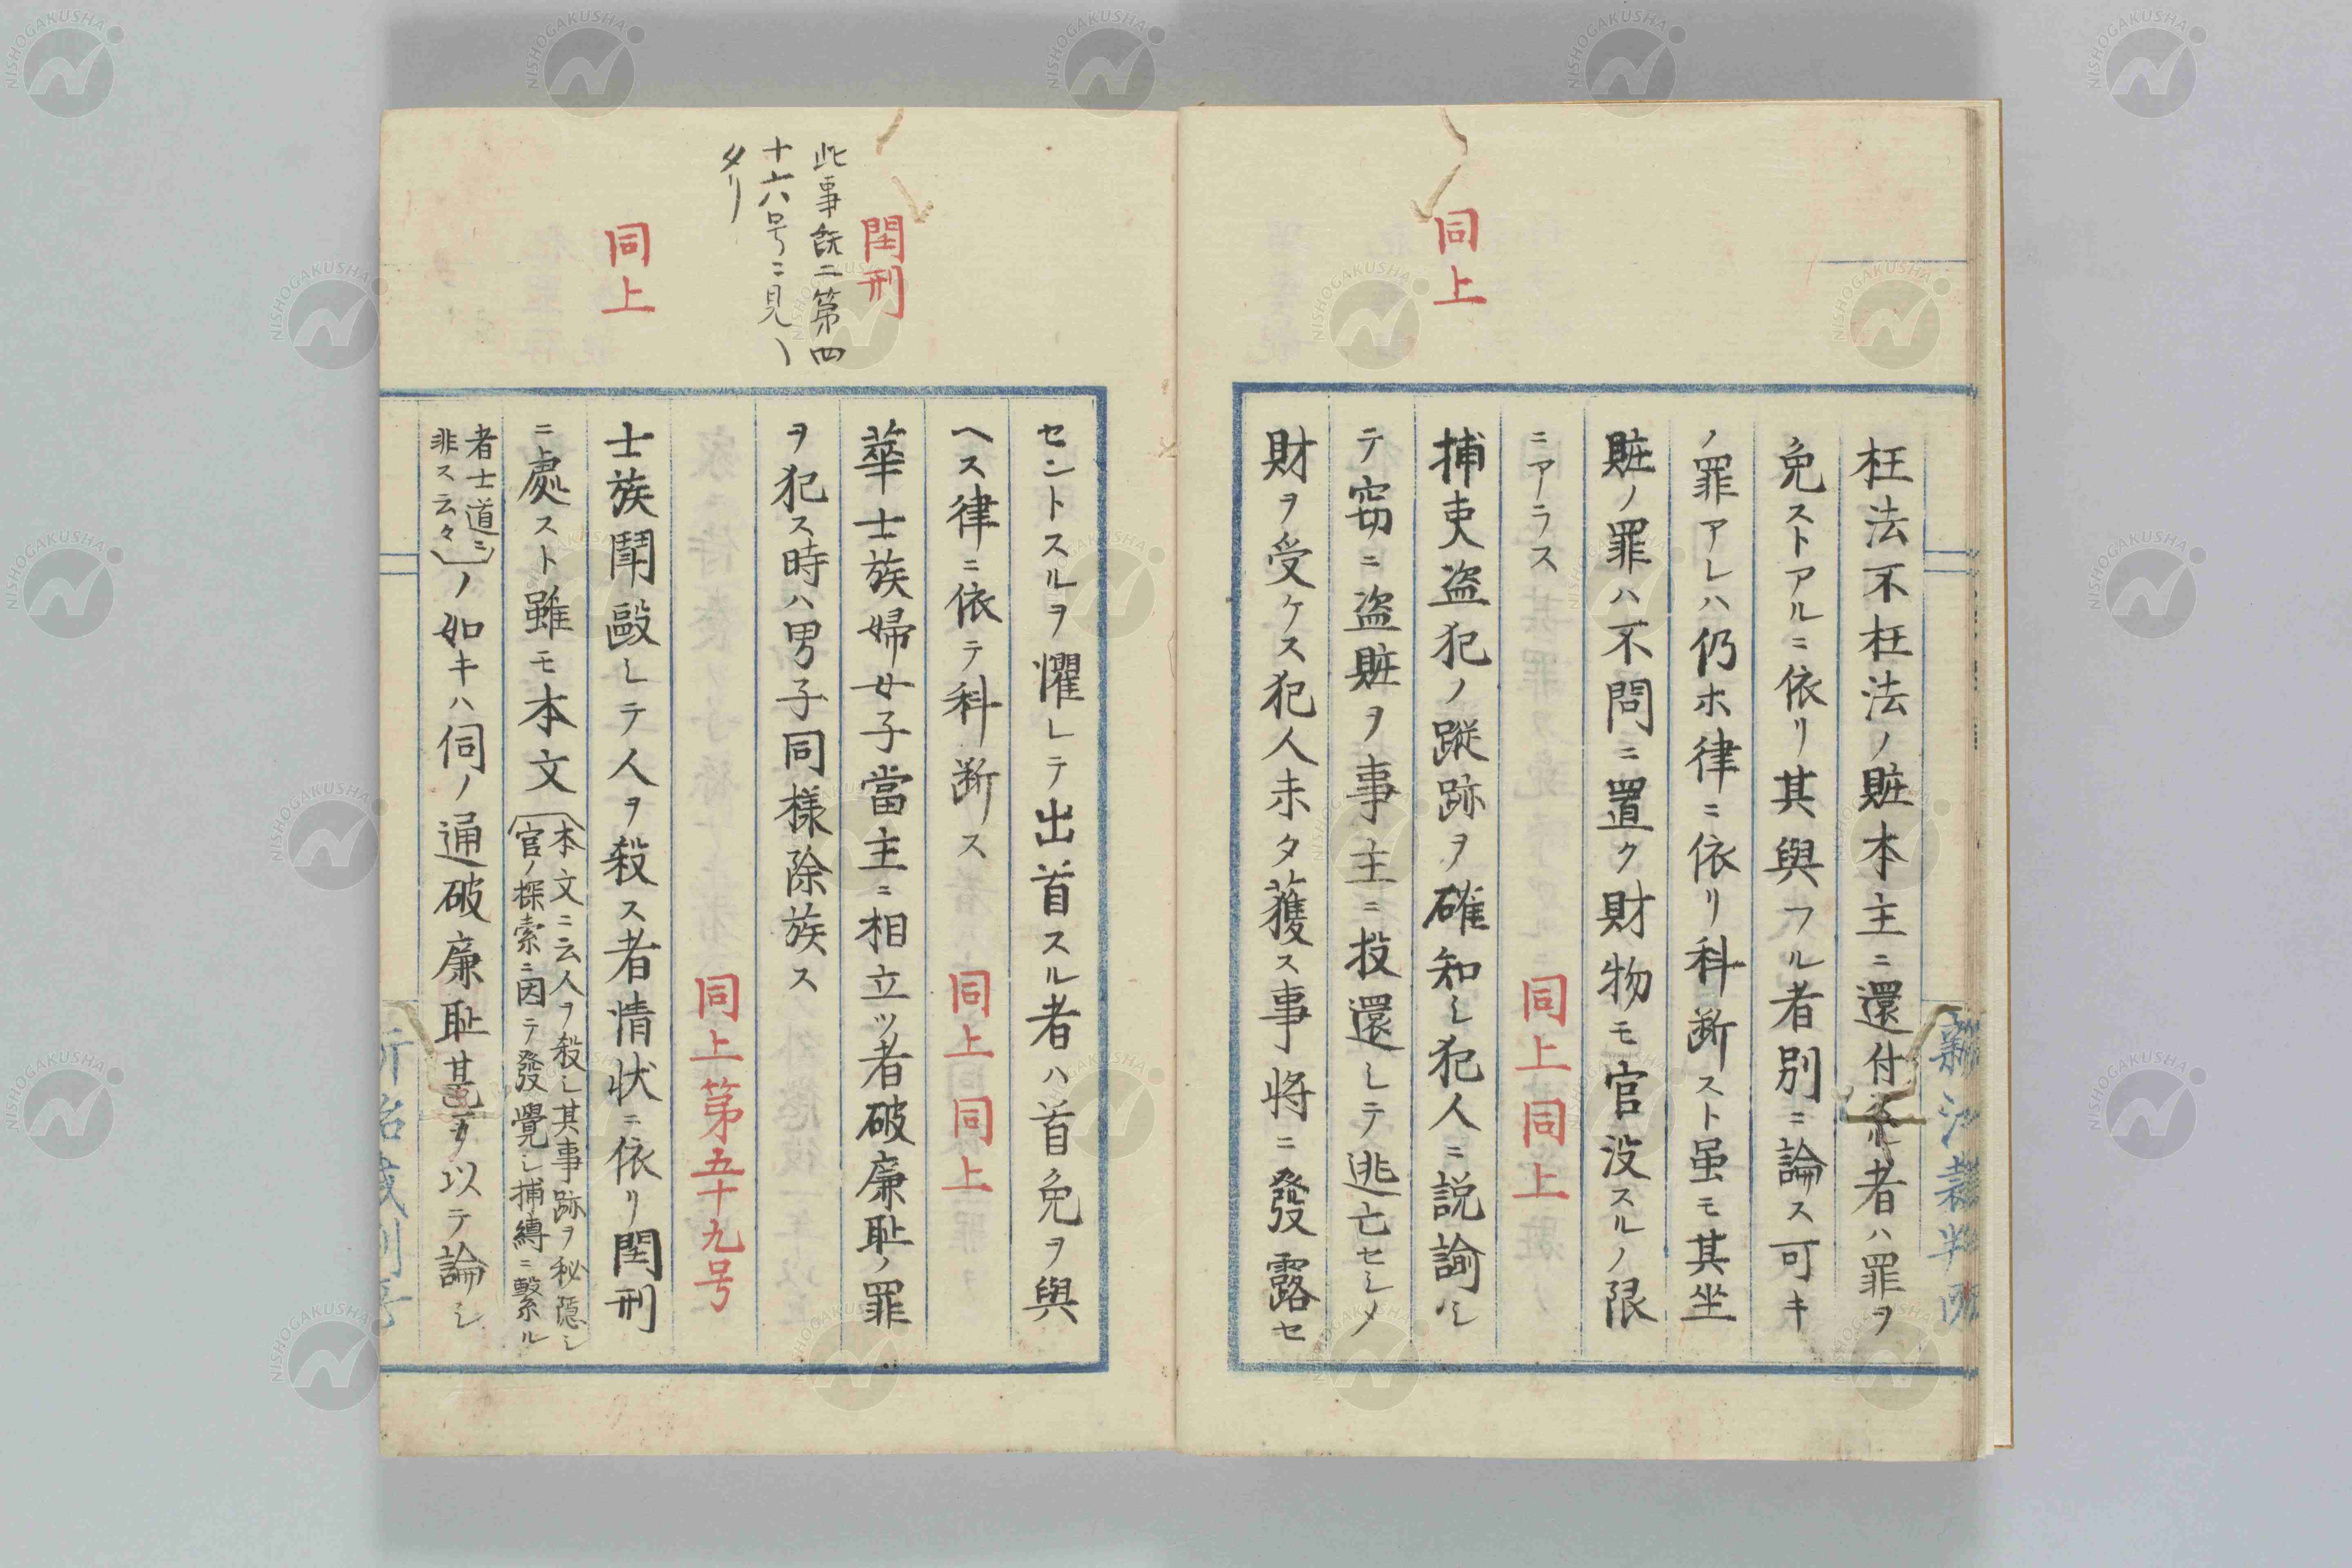 枉法不枉法ノ賍本主ニ還付スル者ハ罪ヲ
免ストアルニ依リ其與フル者別ニ論ス可キ
ノ罪アレハ仍ホ律ニ依リ科断スト虽モ其坐
賍ノ罪ハ不問ニ置ク財物モ官没スルノ限
ニアラス
同上同上
同上
捕吏盗犯ノ蹤跡ヲ確知シ犯人ニ説諭シ
テ窃ニ盗賍ヲ事主ニ投還シテ逃亡セシメ
財ヲ受ケス犯人未タ獲ス事将ニ發露セ
セントスルヲ懼レテ出首スル者ハ首免ヲ與
ヘス律ニ依テ科断ス
同上同上
閏刑
此事既ニ第四
十六号ニ見ヘ
タリ
華士族婦女子當主ニ相立ツ者破廉耻ノ罪
ヲ犯ス時ハ男子同様除族ス
同上第五十九号
同上
士族鬪毆シテ人ヲ殺ス者情状ニ依リ閏刑
ニ處スト雖モ本文
本文ニ云人ヲ殺シ其事跡ヲ秘隠シ
官ノ探索ニ因テ發覺シ捕縛ニ繫ル
者士道ニ
非ス云々
ノ如キハ伺ノ通破廉耻甚ヲ以テ論シ
新治裁判所
NISHOGAKUSHA